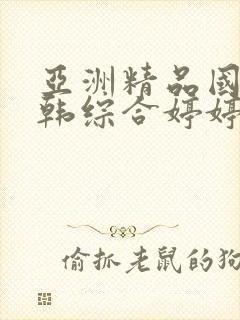 亞洲精品國
韩综合婷婷
偷抓老鼠的狗